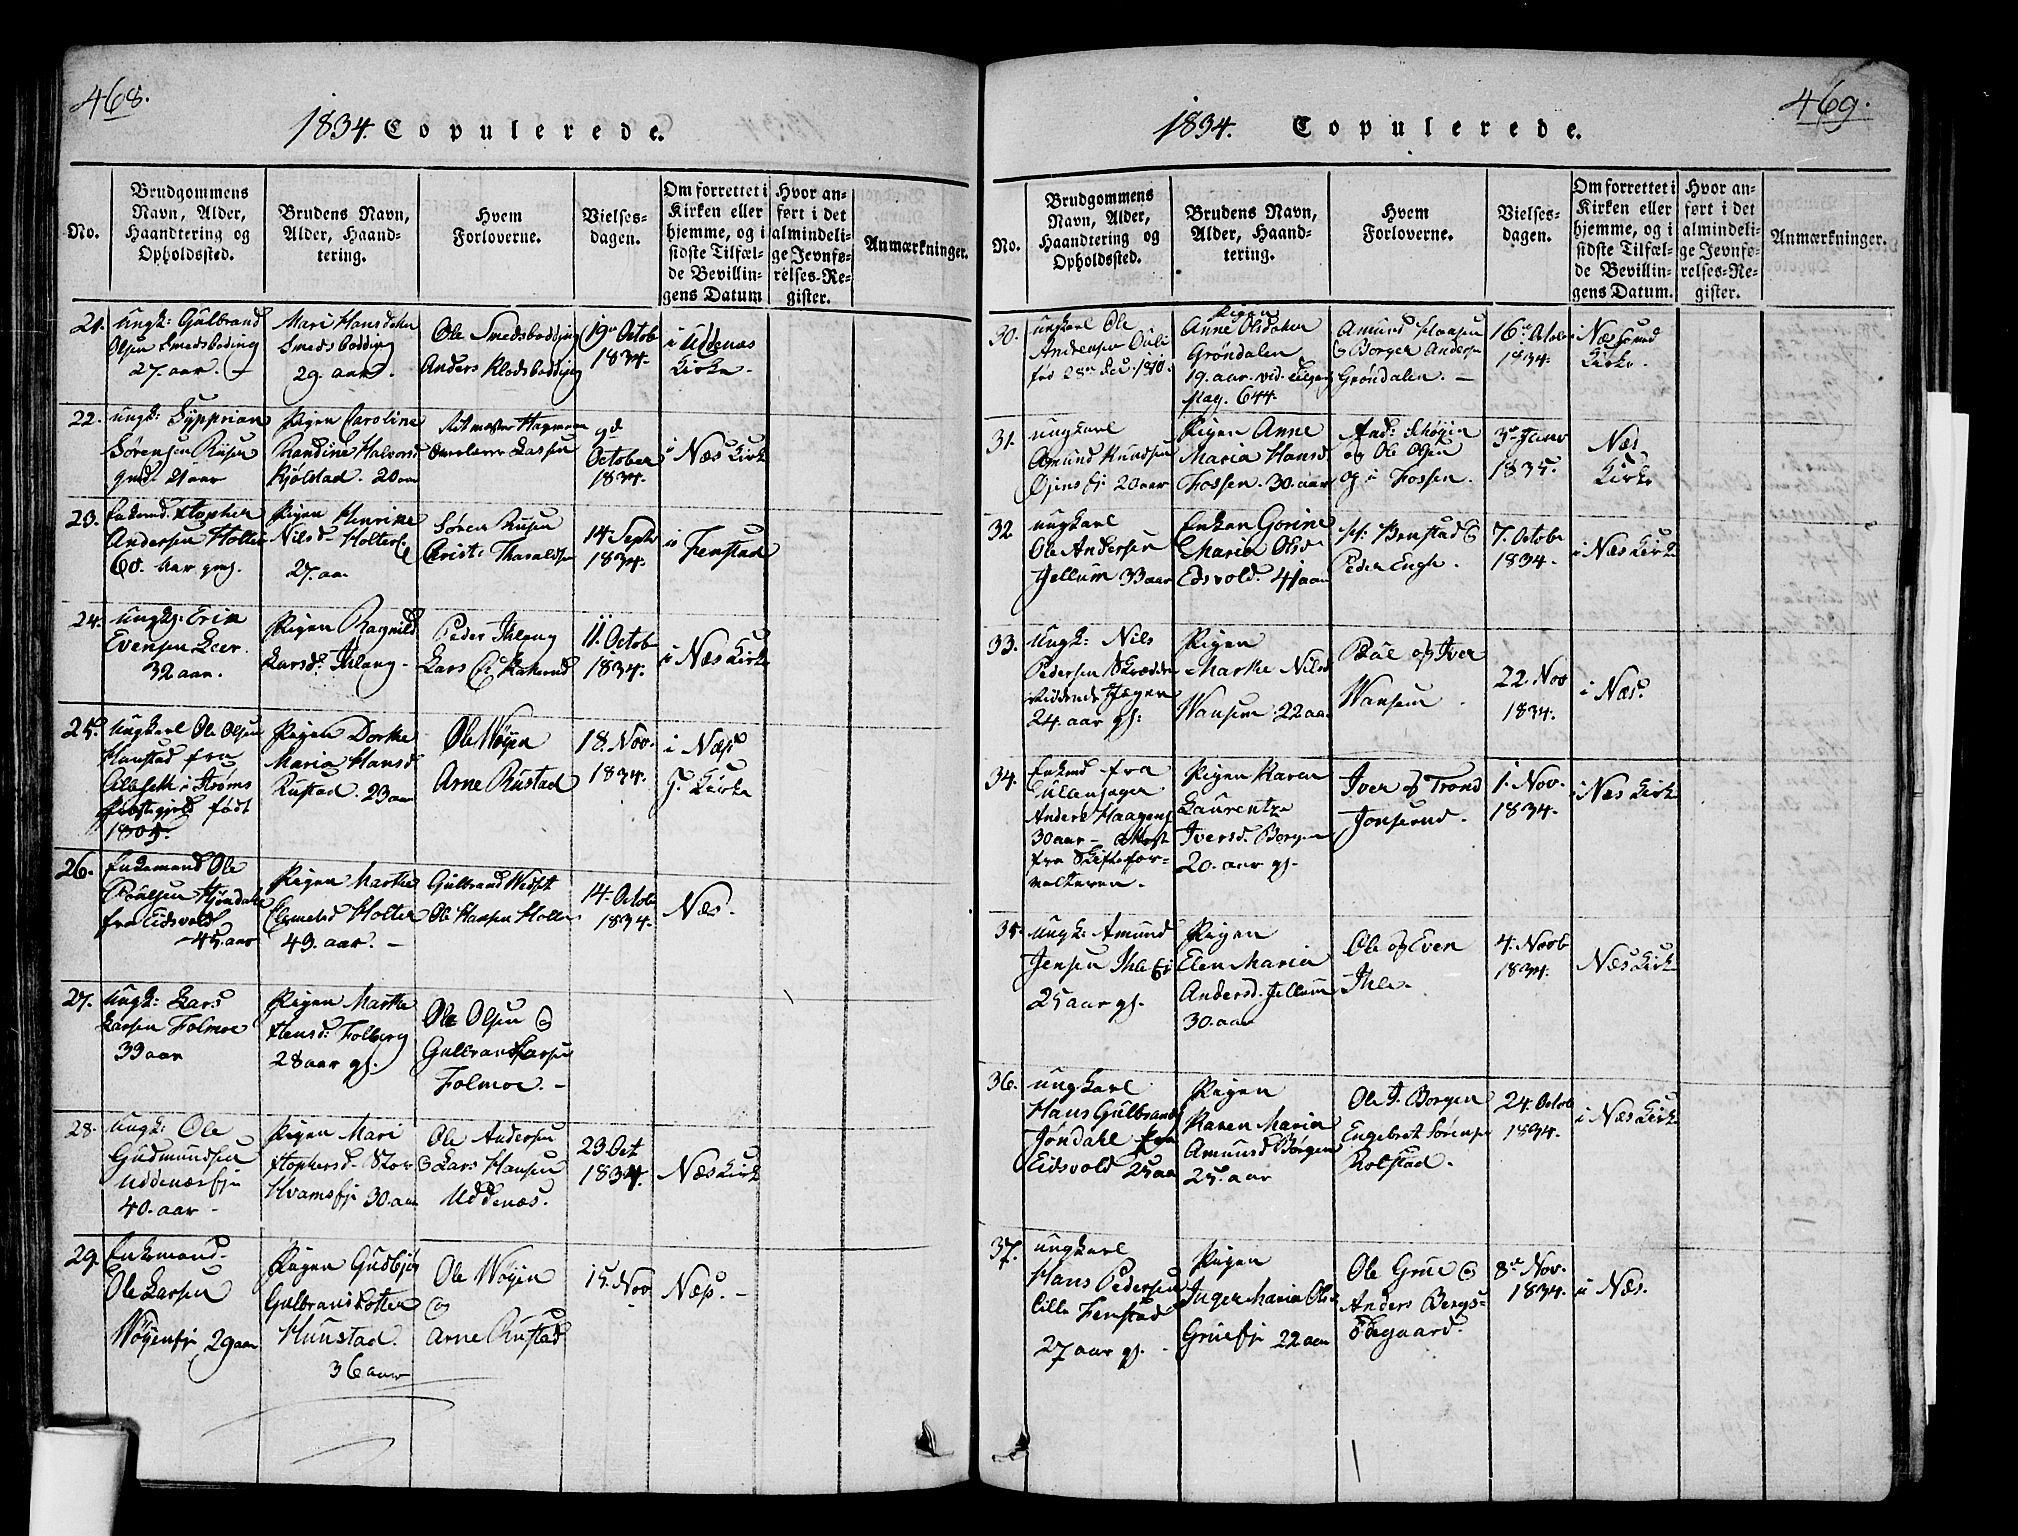 468.
1834. Copulerede.
No.
Brudgommens
Navn, Alder,
Haandtering og
Opholdssted.
Brudens Navn,
Alder, Haand-
tering.
Hvem
Forloverne.
Vielses-
dagen.
Om forrettet i
Kirken eller
hjemme, og i
sidste Tilfæl-
de Bevillin-
gens Datum
Hvor an-
ført i det
almindeli-
ge Jevnfø-
relses-Re-
gister.
Anmærkninger.
21.
Ungk: Gulbrand
Olsen Smedsboding
27. aar.
Mari Hansdater
Smedsbodding
29. aar.
Ole Smedsbodding
Anders Klodsbodding
19de Octob
1834.
i Uddenæs
Kirke.
22.
Ungk:
Sørensen Ruusen
21 aar
Pigen Caroline
Randine Halvorsd
Kjølstad. 20 aar
Ritmester Hagemann
Lassen
October
1834.
i Næs Kirke
23.
Enkemd. Stopher
Andersen Holter
60. Aar
Pigen Henrike
Nilsd Holter
27. aa
Søren Ruuse
Christ: Tharalds
14 Sept
1834.
i Fenstad
24.
Ungk: Erik
Evensen Leer.
32 aar.
Pigen Ragnild
Larsd. Ihlang
Peder Ihlang
Lars
11. Octob
1834.
i Næs Kirke
25.
Ungkarl Ole Olsen
Hanstad fra
i Strøms
Præstegjeld født
1805.
Pigen Dorthe
Maria Hansd
Rustad. 23 aar
Ole Wøyen
Arne Rustad
18. Nov.
1834.
i Næs
Kirke
26.
Enkemand Ole
Poulsen
fra Eidsvold
45. aar
Pigen Marthe
Holter
49. aar.
Gulbrand
Ole Hansen Holter
14. Octob
1834.
Næs.
27.
Ungk: Lars
Larsen Folmoe
39 aar
Pigen Marthe
Folberg
28 aar gl.
Ole Olsen &
Gulbrand Larsen
Folmoe.
28.
Ungk: Ole
Gudmundsen
Uddenæsej
40. aar
Pigen Mari
Stophersd. Stor
Hvamsej 30 aar
Ole Andersen
& Lars Hansen
Uddenæs.
23. Oct
1834.
Næs Kirke
29.
Enkemand
Ole Larsen
Wøyenej 29 aar
Pigen Gudbjør
Gulbransdotter
Huustad.
36 aar
Ole Wøyen
&
Arne Rustad
15. Nov
Næs.
469.
1834. Copulerede.
No.
Brudgommens
Navn, Alder,
Haandtering og
Opholdssted.
Brudens Navn,
Alder, Haand-
tering.
Hvem
Forloverne.
Vielses-
dagen.
Om forrettet i
Kirken eller
hjemme, og i
sidste Tilfæl-
de Bevillin-
gens Datum.
Hvor an-
ført i det
almindeli-
ge Jevnfø-
relses-Re-
gister.
Anmærkninger.
30.
Ungkarl Ole
Andreasen
fød 28de Dec. 1810.
Pigen
Anne Olsdater
Grøndalen
19. aar. vid.
Pag. 644.
Amund
& Borger Andersen
Grøndalen.
16de Octob
1834.
i Næs
Kirke.
31.
Ungkarl
Amund Knudsen
20 aar
Pigen Anne
Maria Hansd
Fossen. 30. aar
And:
og Ole Olsen
Fossen.
3de Januar
1835.
Næs
Kirke
32
Ungkarl
Ole Andersen
Jellum 33 aar
Enken Gorine
Maria Olsd
Edsvold. 41 aar
Benstad &
Peder Engh.
7. Octobr
1834.
i Næs Kirke
33.
Ungk: Nils
Pedersen Skrædder
Ridende Jæger
24. aar gl:
Pigen
Marthe Nilsd
Wansem 22 aar
Poul og Iver
Wansem.
22 Nov
1834.
i Næs.
34.
Enkemd fra
Ullensager
Anders Haagens
30 aar
fra Skiftefor-
valteren.
Pigen Karen
Laurentze
Iversd. Borgen
20. aar gl.
Iver og Trond
Jonserud.
1. Nov.
1834.
i Næs Kirke
35.
Ungk: Amund
Jensen Ihle Ei
25 aar gl.
Pigen
Elen Maria
Andersd. Jellum
30. aar
Ole og Even
Ihle.
4. Novb
1834.
Næs Kirke
36.
Ungkarl
Hans Gulbrands
Jøndahl fra
Eidsvold 25 aar
Pigen
Karen Maria
Amunsd Borgen
25. aar
Ole J. Borgen
Engebret Sørensen
Rolstad.
24. Octob
1834.
i Næs Kirke
37.
Ungkarl
Hans Pedersen
Lille Fenstad
27 aar gl.
Pigen
Inger Maria Olsd
Grueej 22 aar
Ole Grue &
Anders Bergs-
Ødegaard.
8de Nov.
1834.
i Næs.